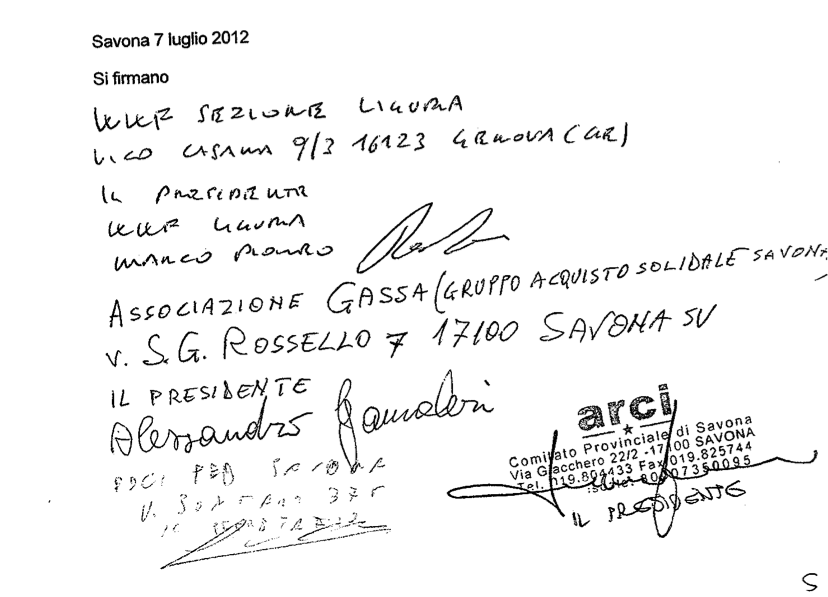 Savona 7 luglio 2012
Si firmano
WWF SEZIONE LIGURIA
VICO CASANA 9/3 16123 GENOVA (GE)
IL PRESIDENTE
WWF LIGURIA
MARCO PIOMBO
ASSOCIAZIONE GASSA (GRUPPO ACQUISTO SOLIDALE SAVONA
V. S.G. ROSSELLO 7 17100 SAVONA SV
IL PRESIDENTE
Alessandro
PDCI FED SAVONA
V.
arci
Comitato Provinciale di Savona
Via Giacchero 22/2 - 17100 SAVONA
Tel. 019.804433 Fax 019.825744
IL PRESIDENTE
S